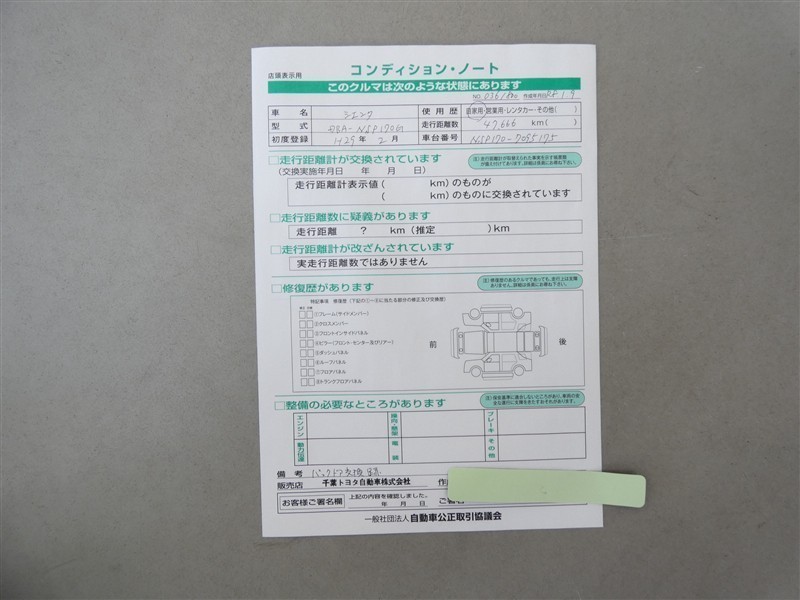 店頭表示用
コンディション・ノート
このクルマは次のような状態にあります
車 名 シエンタ 使用歴 自家用・営業用・レンタカー・その他( )
型 式 DBA-NSP170G 走行距離数 47,666 km( )
初度登録 H29年 2月 車台番号 NSP170-7095175
□走行距離計が交換されています
(交換実施年月日 年 月 日)
走行距離計表示値( km)のものが
( km)のものに交換されています
□走行距離数に疑義があります
走行距離 ? km(推定 )km
□走行距離計が改ざんされています
実走行距離数ではありません
□修復歴があります
特記事項 修復歴(下記の①~⑧に当たる部分の修正及び交換歴)
①フレーム(サイドメンバー)
②クロスメンバー
③フロントインサイドパネル
④ピラー(フロント・センター及びリアー)
⑤ダッシュパネル
⑥ルーフパネル
⑦フロアパネル
⑧トランクフロアパネル
前 後
□整備の必要なところがあります
エンジン
ブレーキ
動力伝達
電装
その他
備 考 バックドア交換
販売店 千葉トヨタ自動車株式会社
お客様ご署名欄 上記の内容を確認しました。
年 月 日
一般社団法人 自動車公正取引協議会